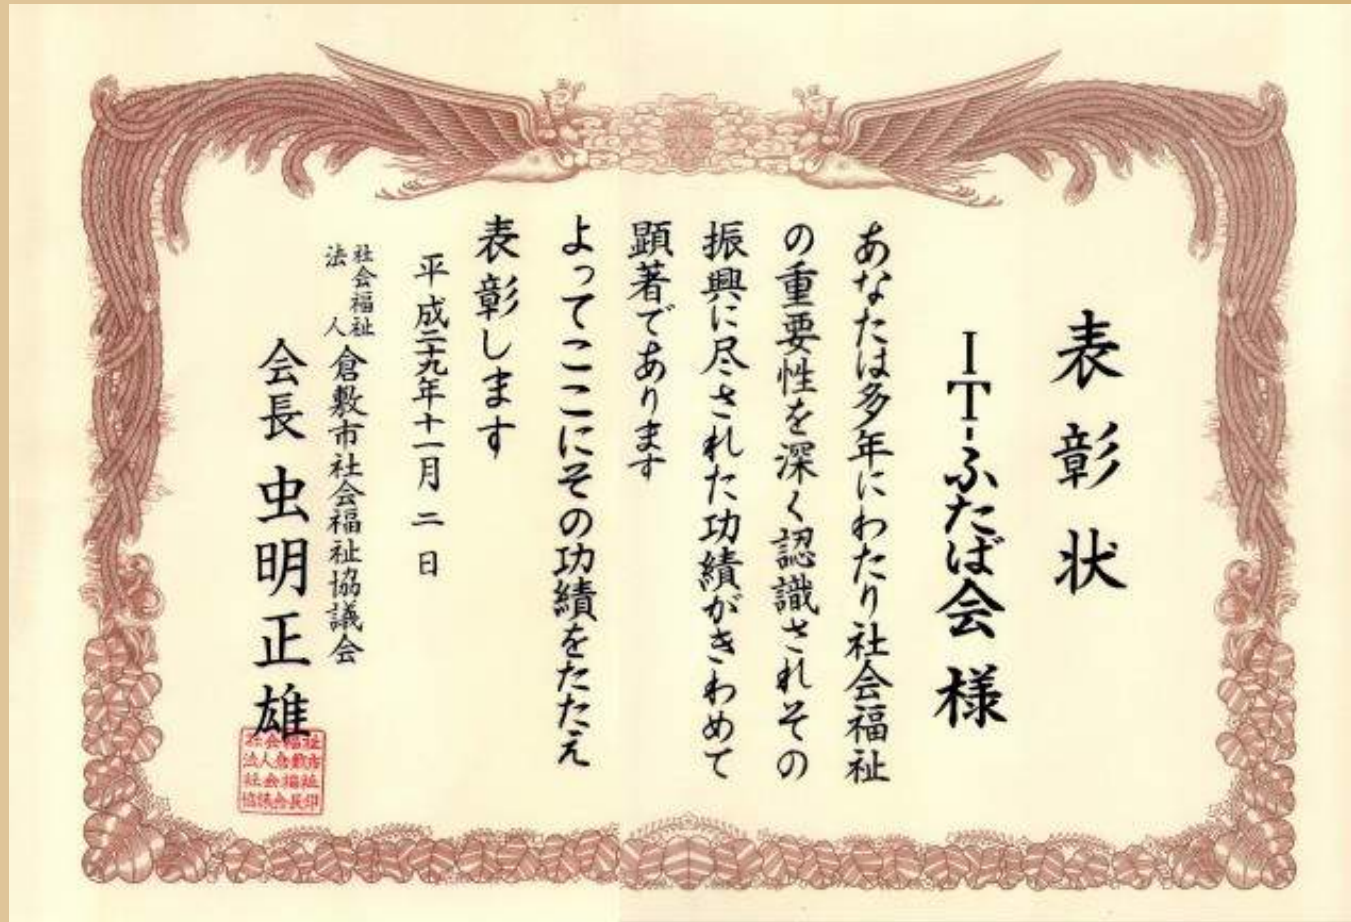 表彰状
IT-ふたば会 様
あなたは多年にわたり社会福祉
の重要性を深く認識されその
振興に尽された功績がきわめて
顕著であります
よってここにその功績をたたえ
表彰します
平成二十九年十一月二日
社会福祉法人 倉敷市社会福祉協議会
会長 虫明正雄
社会福祉
法人倉敷市
社会福祉
協議会長印